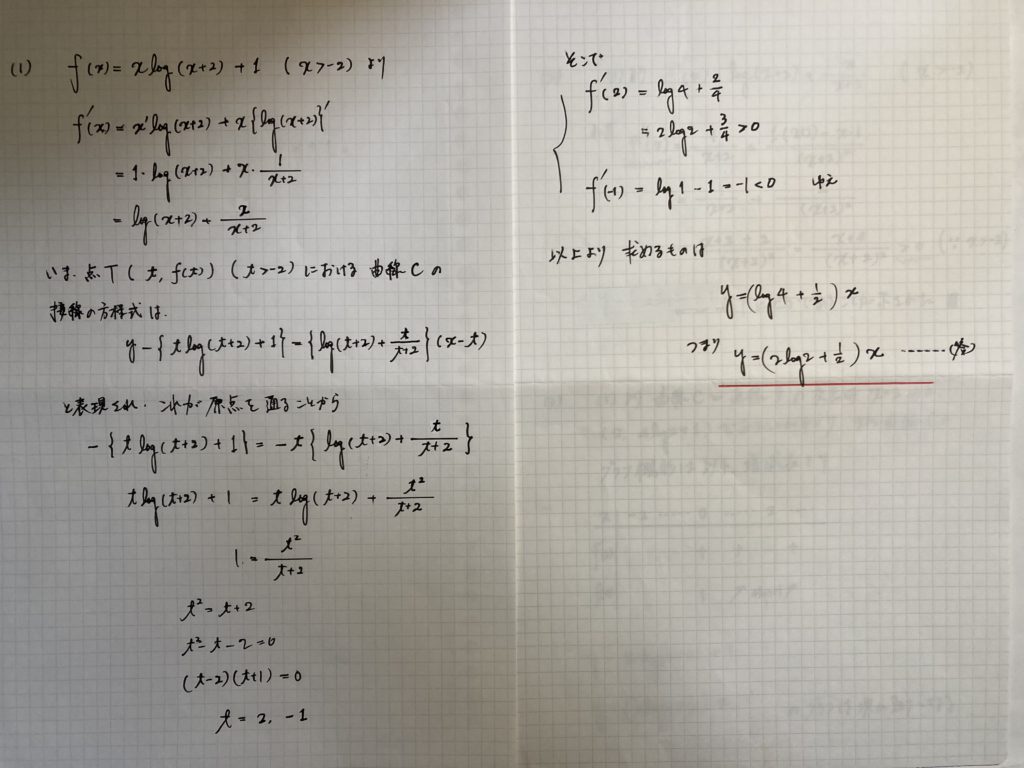 (1) f(x) = x log(x+2) + 1 (x>-2) より
f'(x) = x' log(x+2) + x{log(x+2)}'
= 1・log(x+2) + x・1/(x+2)
= log(x+2) + x/(x+2)
いま、点T(t, f(t)) (t>-2)における曲線Cの
接線の方程式は、
y-{t log(t+2)+1} = {log(t+2) + t/(t+2)}(x-t)
と表現され、これが原点を通ることから
-{t log(t+2)+1} = -t{log(t+2) + t/(t+2)}
t log(t+2) + 1 = t log(t+2) + t²/(t+2)
1 = t²/(t+2)
t² = t+2
t²-t-2=0
(t-2)(t+1)=0
t = 2, -1
そこで
f'(2) = log4 + 2/4
= 2log2 + 3/4 > 0
f'(-1) = log1 - 1 = -1 < 0 ゆえ
以上より 求めるものは
y = (log4 + 1/2)x
つまり y = (2log2 + 1/2)x ……(答)